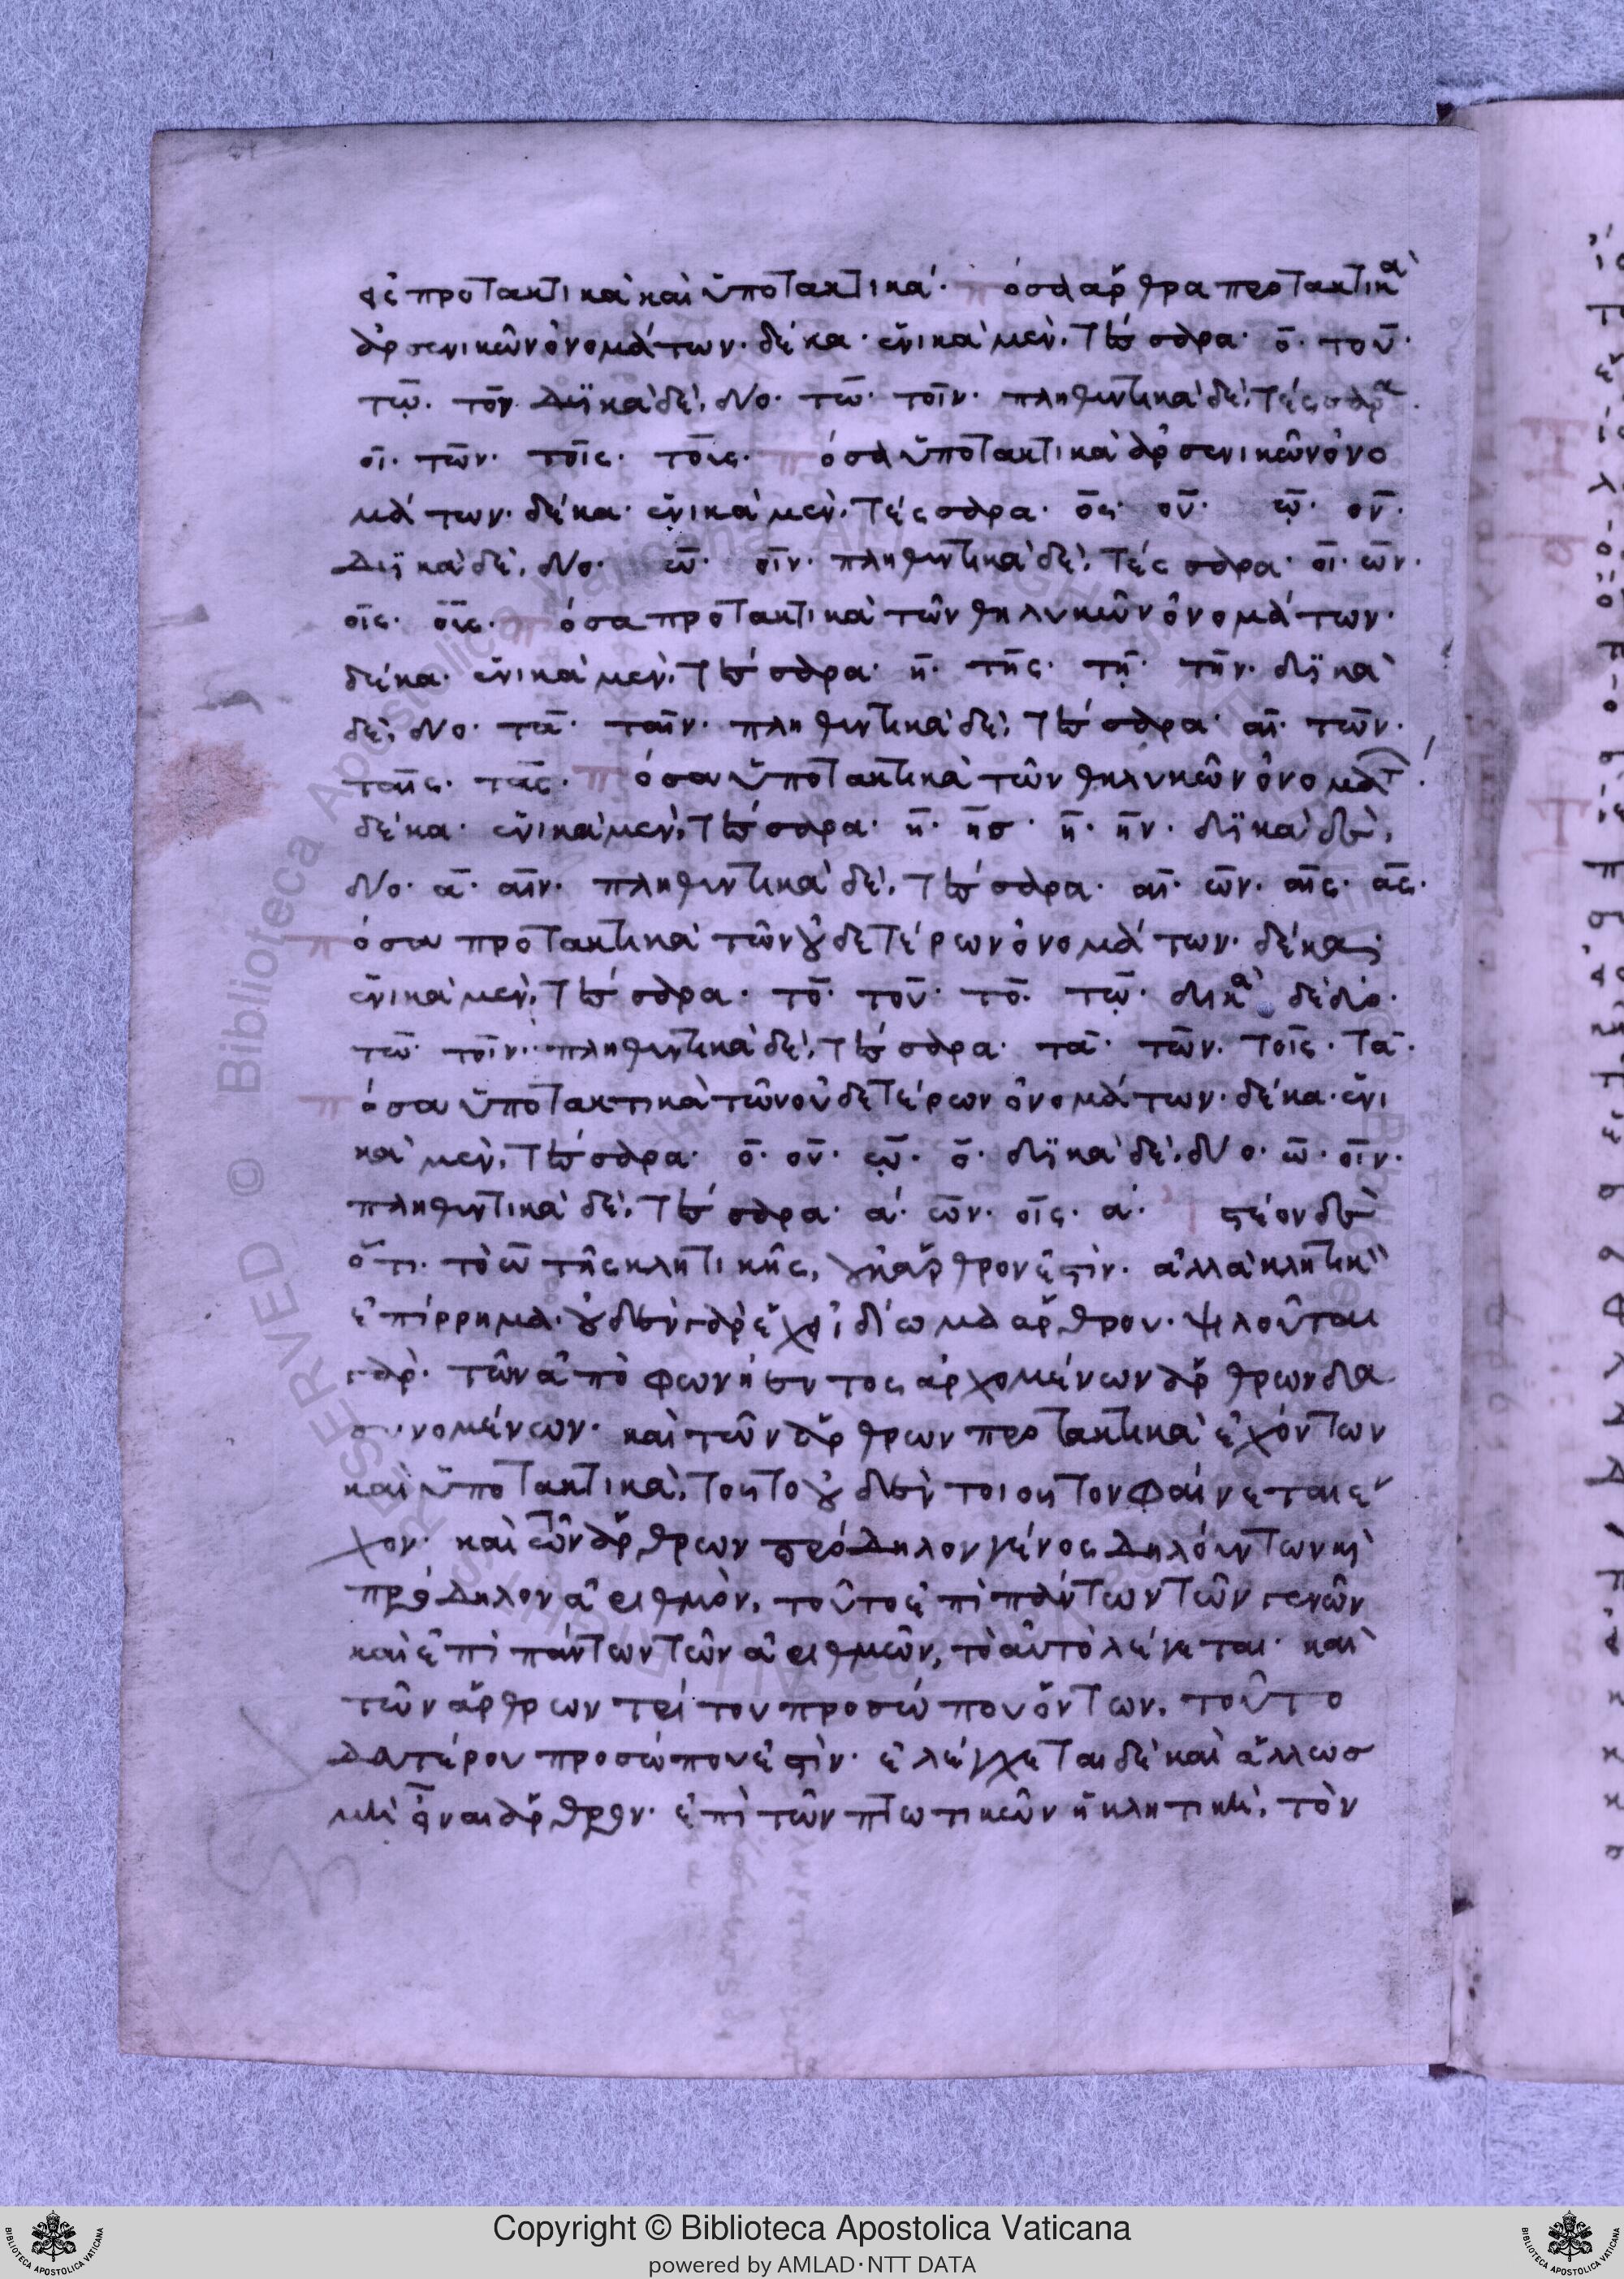 εἰς προτακτικὰ καὶ ὑποτακτικά· π όσα ἄρθρα προτακτικὰ
ἀρσενικῶν ὀνομάτων· δέκα· ἑνικὰ μὲν, τέσσαρα· ὁ· τοῦ·
τῷ· τόν· Δυϊκὰ δὲ, δύο· τὼ· τοῖν· πληθυντικὰ δὲ, τέσσαρα·
οἱ· τῶν· τοῖς· τοὺς· π όσα ὑποτακτικὰ ἀρσενικῶν ὀνο
μάτων· δέκα· ἑνικὰ μὲν, τέσσαρα· ὅς· οὗ· ᾧ· ὅν·
Δυϊκὰ δὲ, δύο· ὣ· οἷν· πληθυντικὰ δὲ, τέσσαρα· οἵ· ὧν·
οἷς· οὕς· π όσα προτακτικὰ τῶν θηλυκῶν ὀνομάτων·
δέκα· ἑνικὰ μὲν, τέσσαρα· ἡ· τῆς· τῇ· τήν· δυϊκὰ
δὲ, δύο· τὰ· ταῖν· πληθυντικὰ δὲ, τέσσαρα· αἱ· τῶν·
ταῖς· τάς· π όσα ὑποτακτικὰ τῶν θηλυκῶν ὀνομάτ·
δέκα· ἑνικὰ μὲν, τέσσαρα· ἥ· ἧσ· ᾗ· ἥν· δυϊκὰ δὲ,
δύο· ἅ· αἷν· πληθυντικὰ δὲ, τέσσαρα· αἵ· ὧν· αἷς· ἅς·
π όσα προτακτικὰ τῶν οὐδετέρων ὀνομάτων· δέκα·
ἑνικὰ μὲν, τέσσαρα· τὸ· τοῦ· τὸ· τῷ· δυϊκὰ δὲ δύο·
τὼ· τοῖν· πληθυντικὰ δὲ, τέσσαρα· τὰ· τῶν· τοῖς· τά·
π όσα ὑποτακτικὰ τῶν οὐδετέρων ὀνομάτων· δέκα· ἑνι
κὰ μὲν, τέσσαρα· ὅ· οὗ· ᾧ· ὅ· δυϊκὰ δὲ, δύο· ὥ· οἷν·
πληθυντικὰ δὲ, τέσσαρα· ἅ· ὧν· οἷς· ἅ· ϛέον δὲ
ὅτι· τὸ ὦ τῆς κλητικῆς, οὐκ ἄρθρον ἐστὶν· ἀλλὰ κλητικὸν
ἐπίρρημα· οὐδὲν γὰρ ἔχει ἰδίωμα ἄρθρου· ψιλοῦται
γὰρ· τῶν ἀπὸ φωνήεντος ἀρχομένων ἄρθρων δα
συνομένων· καὶ τῶν ἄρθρων προτακτικὰ ἐχόντων
καὶ ὑποτακτικὰ, τοῦτο οὐδὲν τοιοῦτον φαίνεται ἔ
χον· καὶ τῶν ἄρθρων πρόδηλον γένος δηλούντων καὶ
πρόδηλον ἀριθμὸν, τοῦτο ἐπὶ πάντων τῶν γενῶν
καὶ ἐπὶ πάντων τῶν ἀριθμῶν, τὸ αὐτὸ λέγεται· καὶ
τῶν ἄρθρων τρίτου προσώπου ὄντων, τοῦτο
δευτέρου προσώπου ἐστὶν· ἐλέγχεται δὲ καὶ ἄλλωσ
μὴ εἶναι ἄρθρον· ἐπὶ τῶν πτωτικῶν ἡ κλητικὴ, τὸν